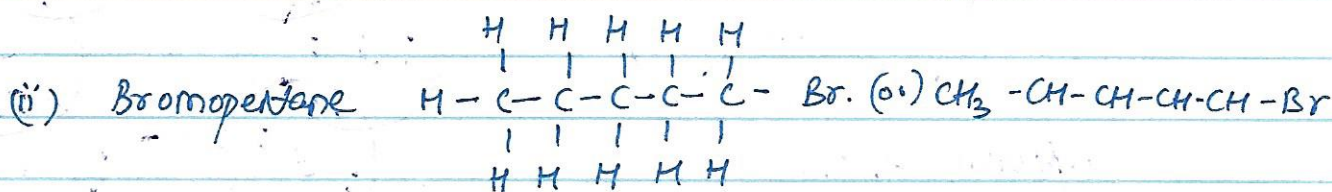 H H H H H
(ii) Bromopentane H-C-C-C-C-C- Br. (or) CH₃ -CH-CH-CH-CH-Br
H H H H H